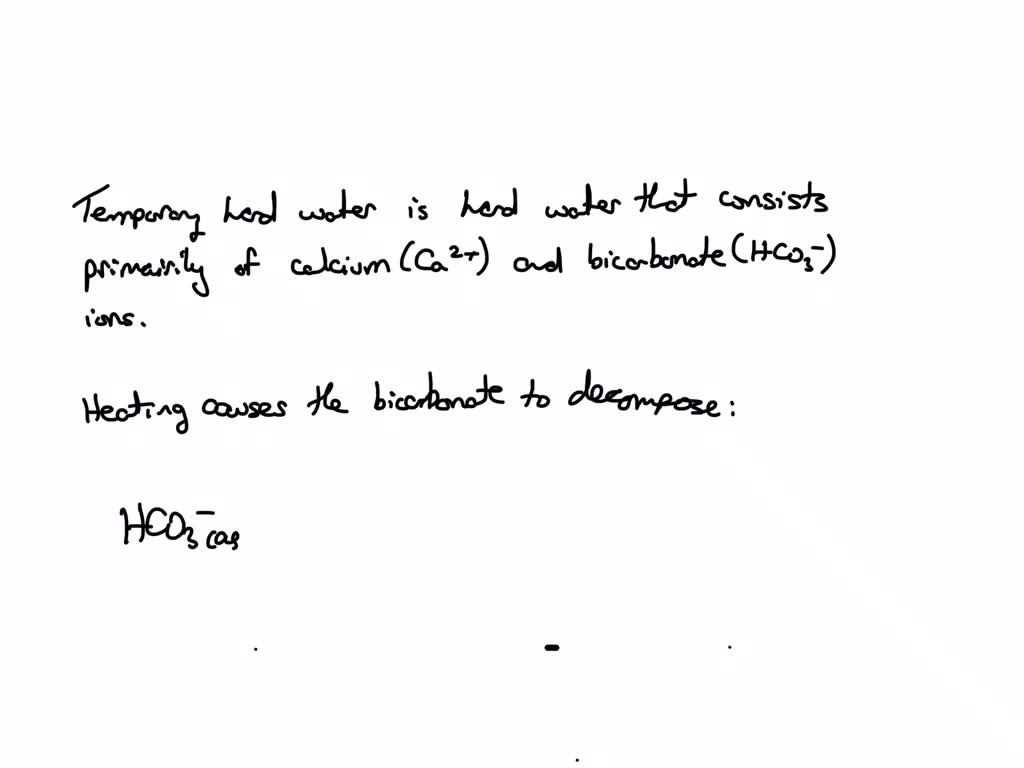 Temporary hard water is hard water that consists
primairily of calcium (Ca²⁺) and bicarbonate (HCO₃⁻)
ions.
Heating causes the bicarbonate to decompose:
HCO₃⁻(aq